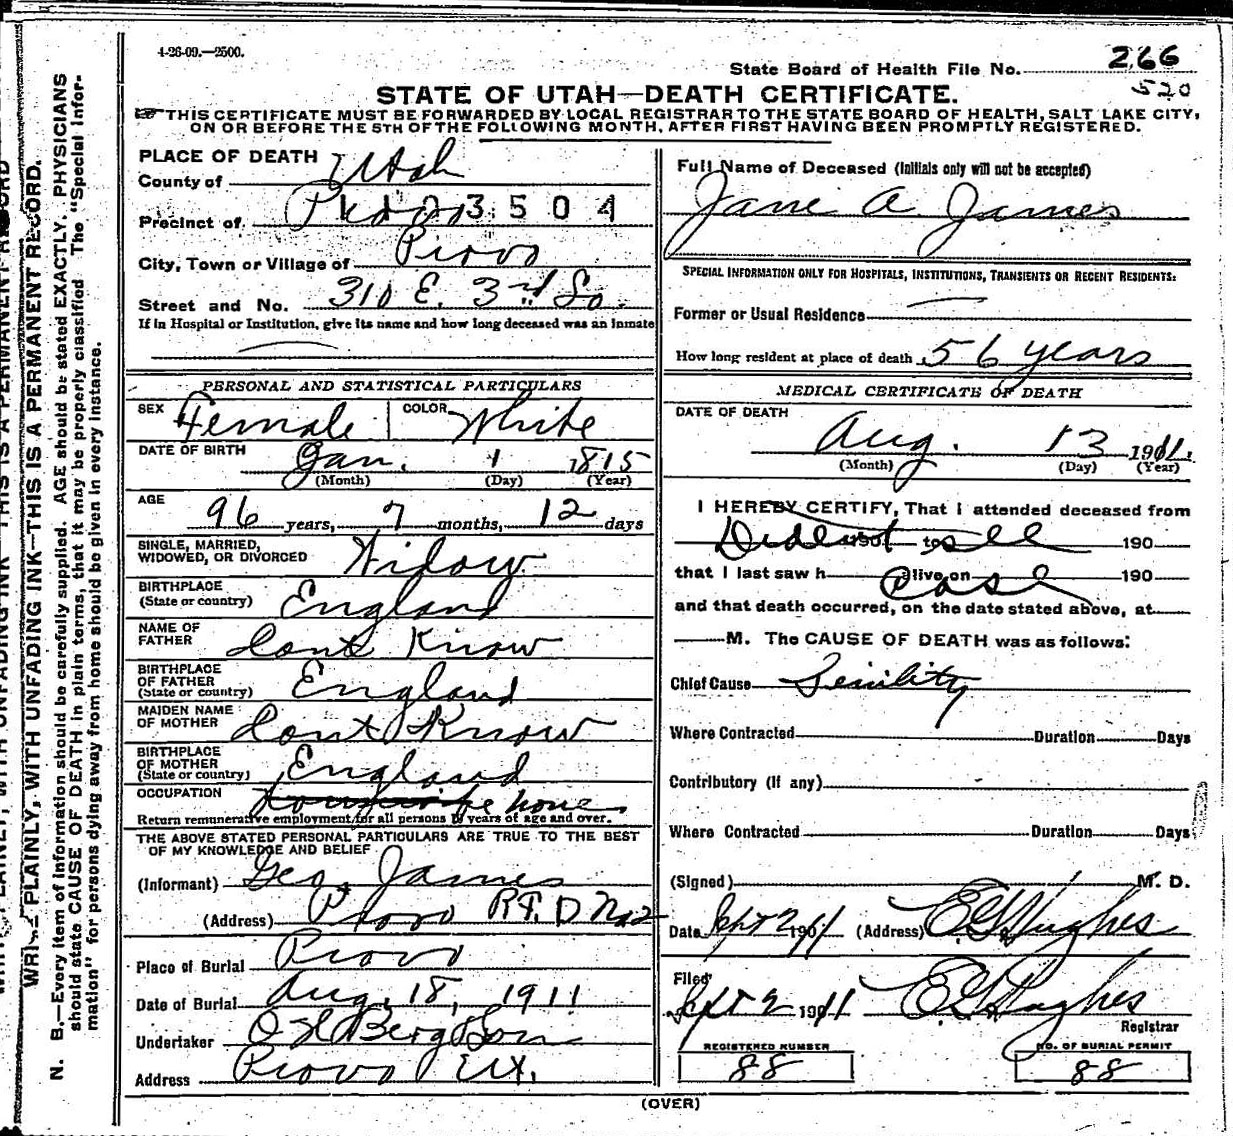 4-26-09.—2500.
State Board of Health File No. 266
520
STATE OF UTAH—DEATH CERTIFICATE.
THIS CERTIFICATE MUST BE FORWARDED BY LOCAL REGISTRAR TO THE STATE BOARD OF HEALTH, SALT LAKE CITY,
ON OR BEFORE THE 5TH OF THE FOLLOWING MONTH, AFTER FIRST HAVING BEEN PROMPTLY REGISTERED.
PLACE OF DEATH
County of Utah
Precinct of Provo 3504
City, Town or Village of Provo
Street and No. 310 E. 3rd So.
If in Hospital or Institution, give its name and how long deceased was an inmate
PERSONAL AND STATISTICAL PARTICULARS
SEX Female COLOR White
DATE OF BIRTH Jan. 1 1815
(Month) (Day) (Year)
AGE 96 years, 7 months, 12 days
SINGLE, MARRIED,
WIDOWED, OR DIVORCED Widow
BIRTHPLACE
(State or country) England
NAME OF
FATHER Dont Know
BIRTHPLACE
OF FATHER
(State or country) England
MAIDEN NAME
OF MOTHER Dont Know
BIRTHPLACE
OF MOTHER
(State or country) England
OCCUPATION Housewife none
Return remunerative employment for all persons 10 years of age and over.
THE ABOVE STATED PERSONAL PARTICULARS ARE TRUE TO THE BEST
OF MY KNOWLEDGE AND BELIEF
(Informant) Geo. James
(Address) Provo R.F.D No 2
Place of Burial Provo
Date of Burial Aug. 18, 1911
Undertaker Berg & Son
Address Provo Ut.
Full Name of Deceased (Initials only will not be accepted)
Jane A James
SPECIAL INFORMATION ONLY FOR HOSPITALS, INSTITUTIONS, TRANSIENTS OR RECENT RESIDENTS:
Former or Usual Residence
How long resident at place of death 56 years
MEDICAL CERTIFICATE OF DEATH
DATE OF DEATH
Aug. 13 1911.
(Month) (Day) (Year)
I HEREBY CERTIFY, That I attended deceased from
Did not 190 to see 190
that I last saw h alive on case 190
and that death occurred, on the date stated above, at
M. The CAUSE OF DEATH was as follows:
Chief Cause Senility
Where Contracted Duration Days
Contributory (If any)
Where Contracted Duration Days
(Signed) M. D.
Date Sept 2 1911 (Address) E G Hughes
Filed
Sept 2 1911 E G Hughes
Registrar
REGISTERED NUMBER NO. OF BURIAL PERMIT
88 88
(OVER)
WRITE PLAINLY, WITH UNFADING INK—THIS IS A PERMANENT RECORD.
N. B.—Every item of information should be carefully supplied. AGE should be stated EXACTLY. PHYSICIANS
should state CAUSE OF DEATH in plain terms, that it may be properly classified The "Special Infor-
mation" for persons dying away from home should be given in every instance.